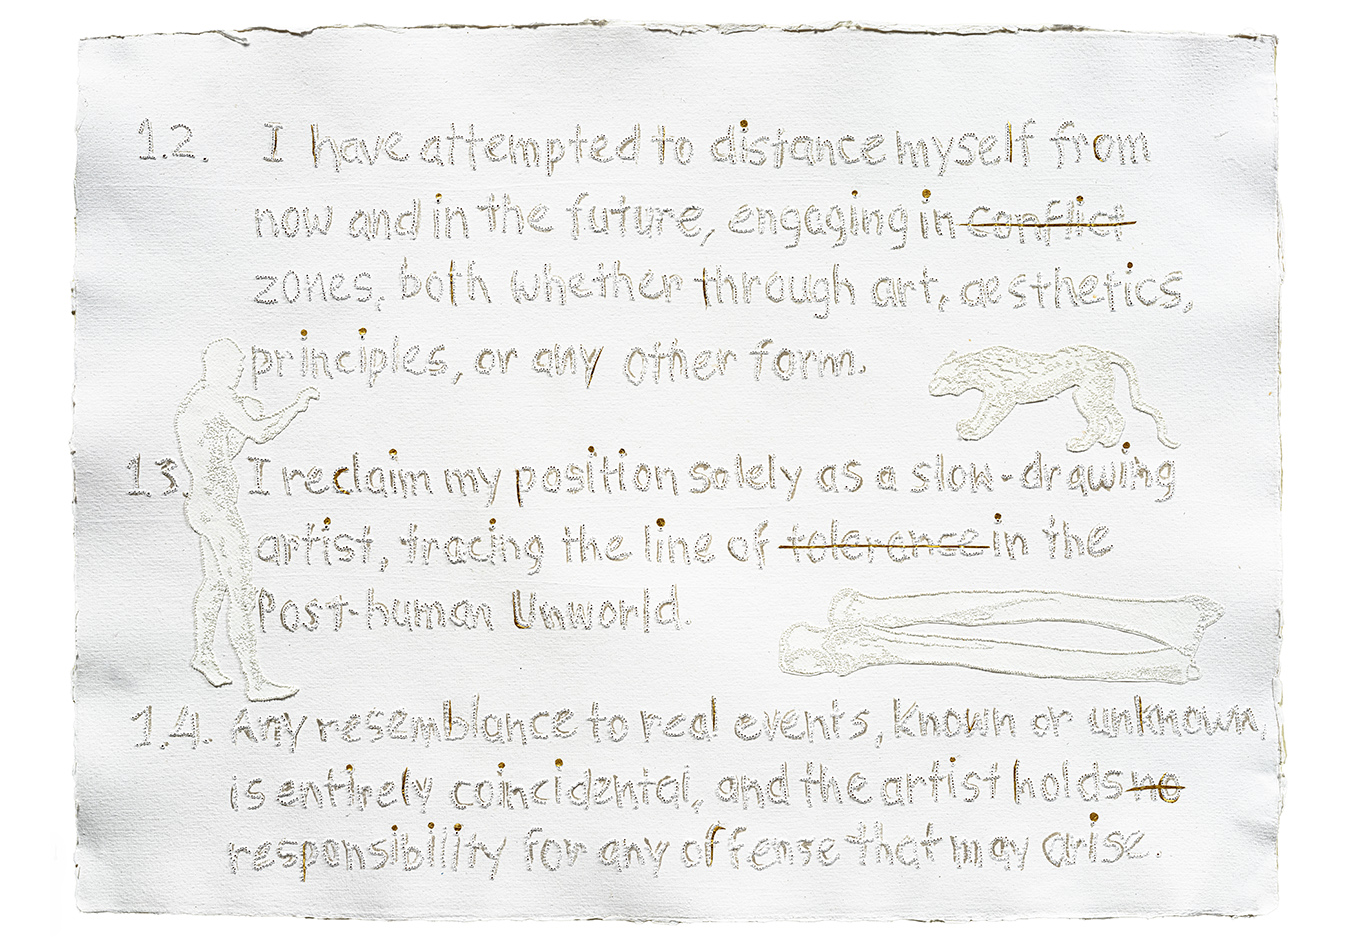 1.2. I have attempted to distance myself from
now and in the future, engaging in conflict
zones, both whether through art, aesthetics,
principles, or any other form.
1.3. I reclaim my position solely as a slow-drawing
artist, tracing the line of tolerance in the
Post-human Unworld.
1.4. Any resemblance to real events, known or unknown,
is entirely coincidental, and the artist holds no
responsibility for any offense that may arise.